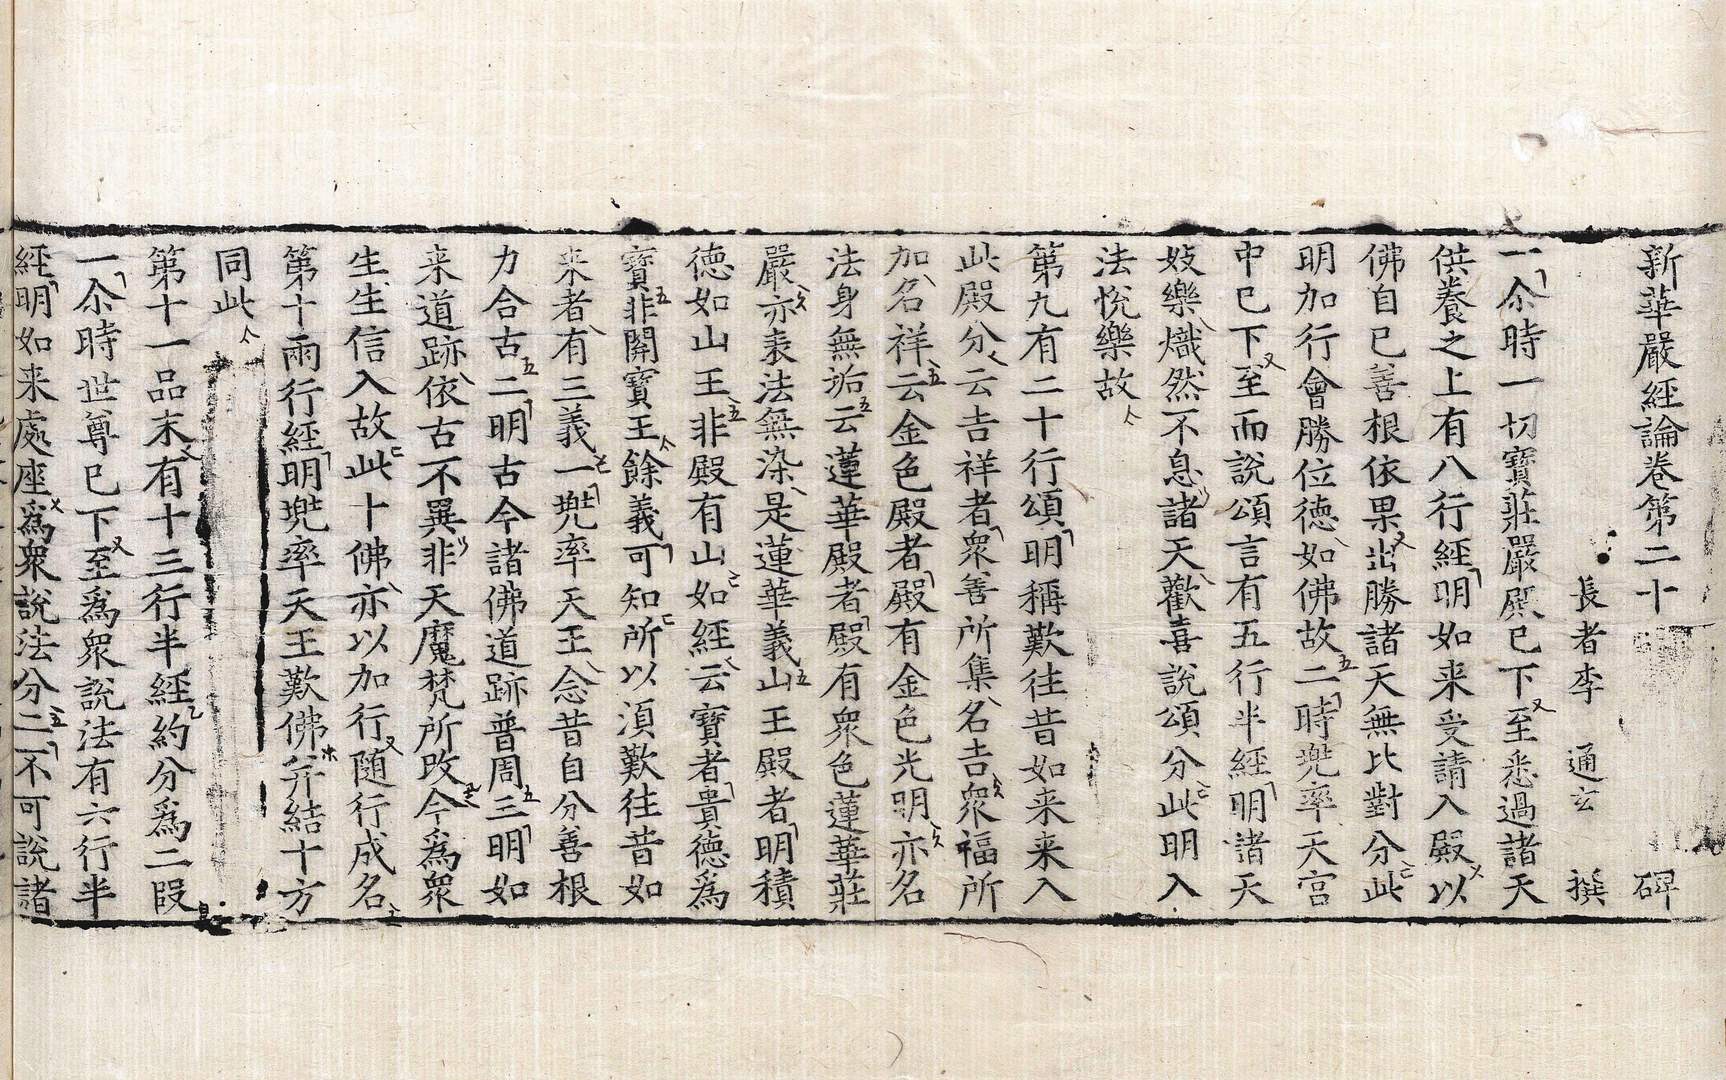 新華嚴經論卷第二十 碑
長者李 通玄 撰
一尒時一切寶莊嚴殿已下至悉過諸天
供養之上有八行經明如来受請入殿以
佛自已善根依果出勝諸天無比對分此
明加行會勝位德如佛故二時兠率天宫
中已下至而說頌言有五行半經明諸天
妓樂熾然不息諸天歡喜說頌分此明入
法悅樂故
第九有二十行頌明稱歎往昔如来来入
此殿分云吉祥者衆善所集名吉衆福所
加名祥云金色殿者殿有金色光明亦名
法身無垢云蓮華殿者殿有衆色蓮華莊
嚴亦表法無染是蓮華義山王殿者明積
德如山王非殿有山如經云寶者貴德爲
寶非關寶王餘義可知所以湏歎往昔如
来者有三義一兠率天王念昔自分善根
力合古二明古今諸佛道跡普周三明如
来道跡依古不異非天魔梵所改今爲衆
生生信入故此十佛亦以加行随行成名
第十兩行經明兠率天王歎佛并結十方
同此
第十一品末有十三行半經約分爲二叚
一尒時世尊已下至爲衆說法有六行半
經明如来處座爲衆說法分二不可說諸